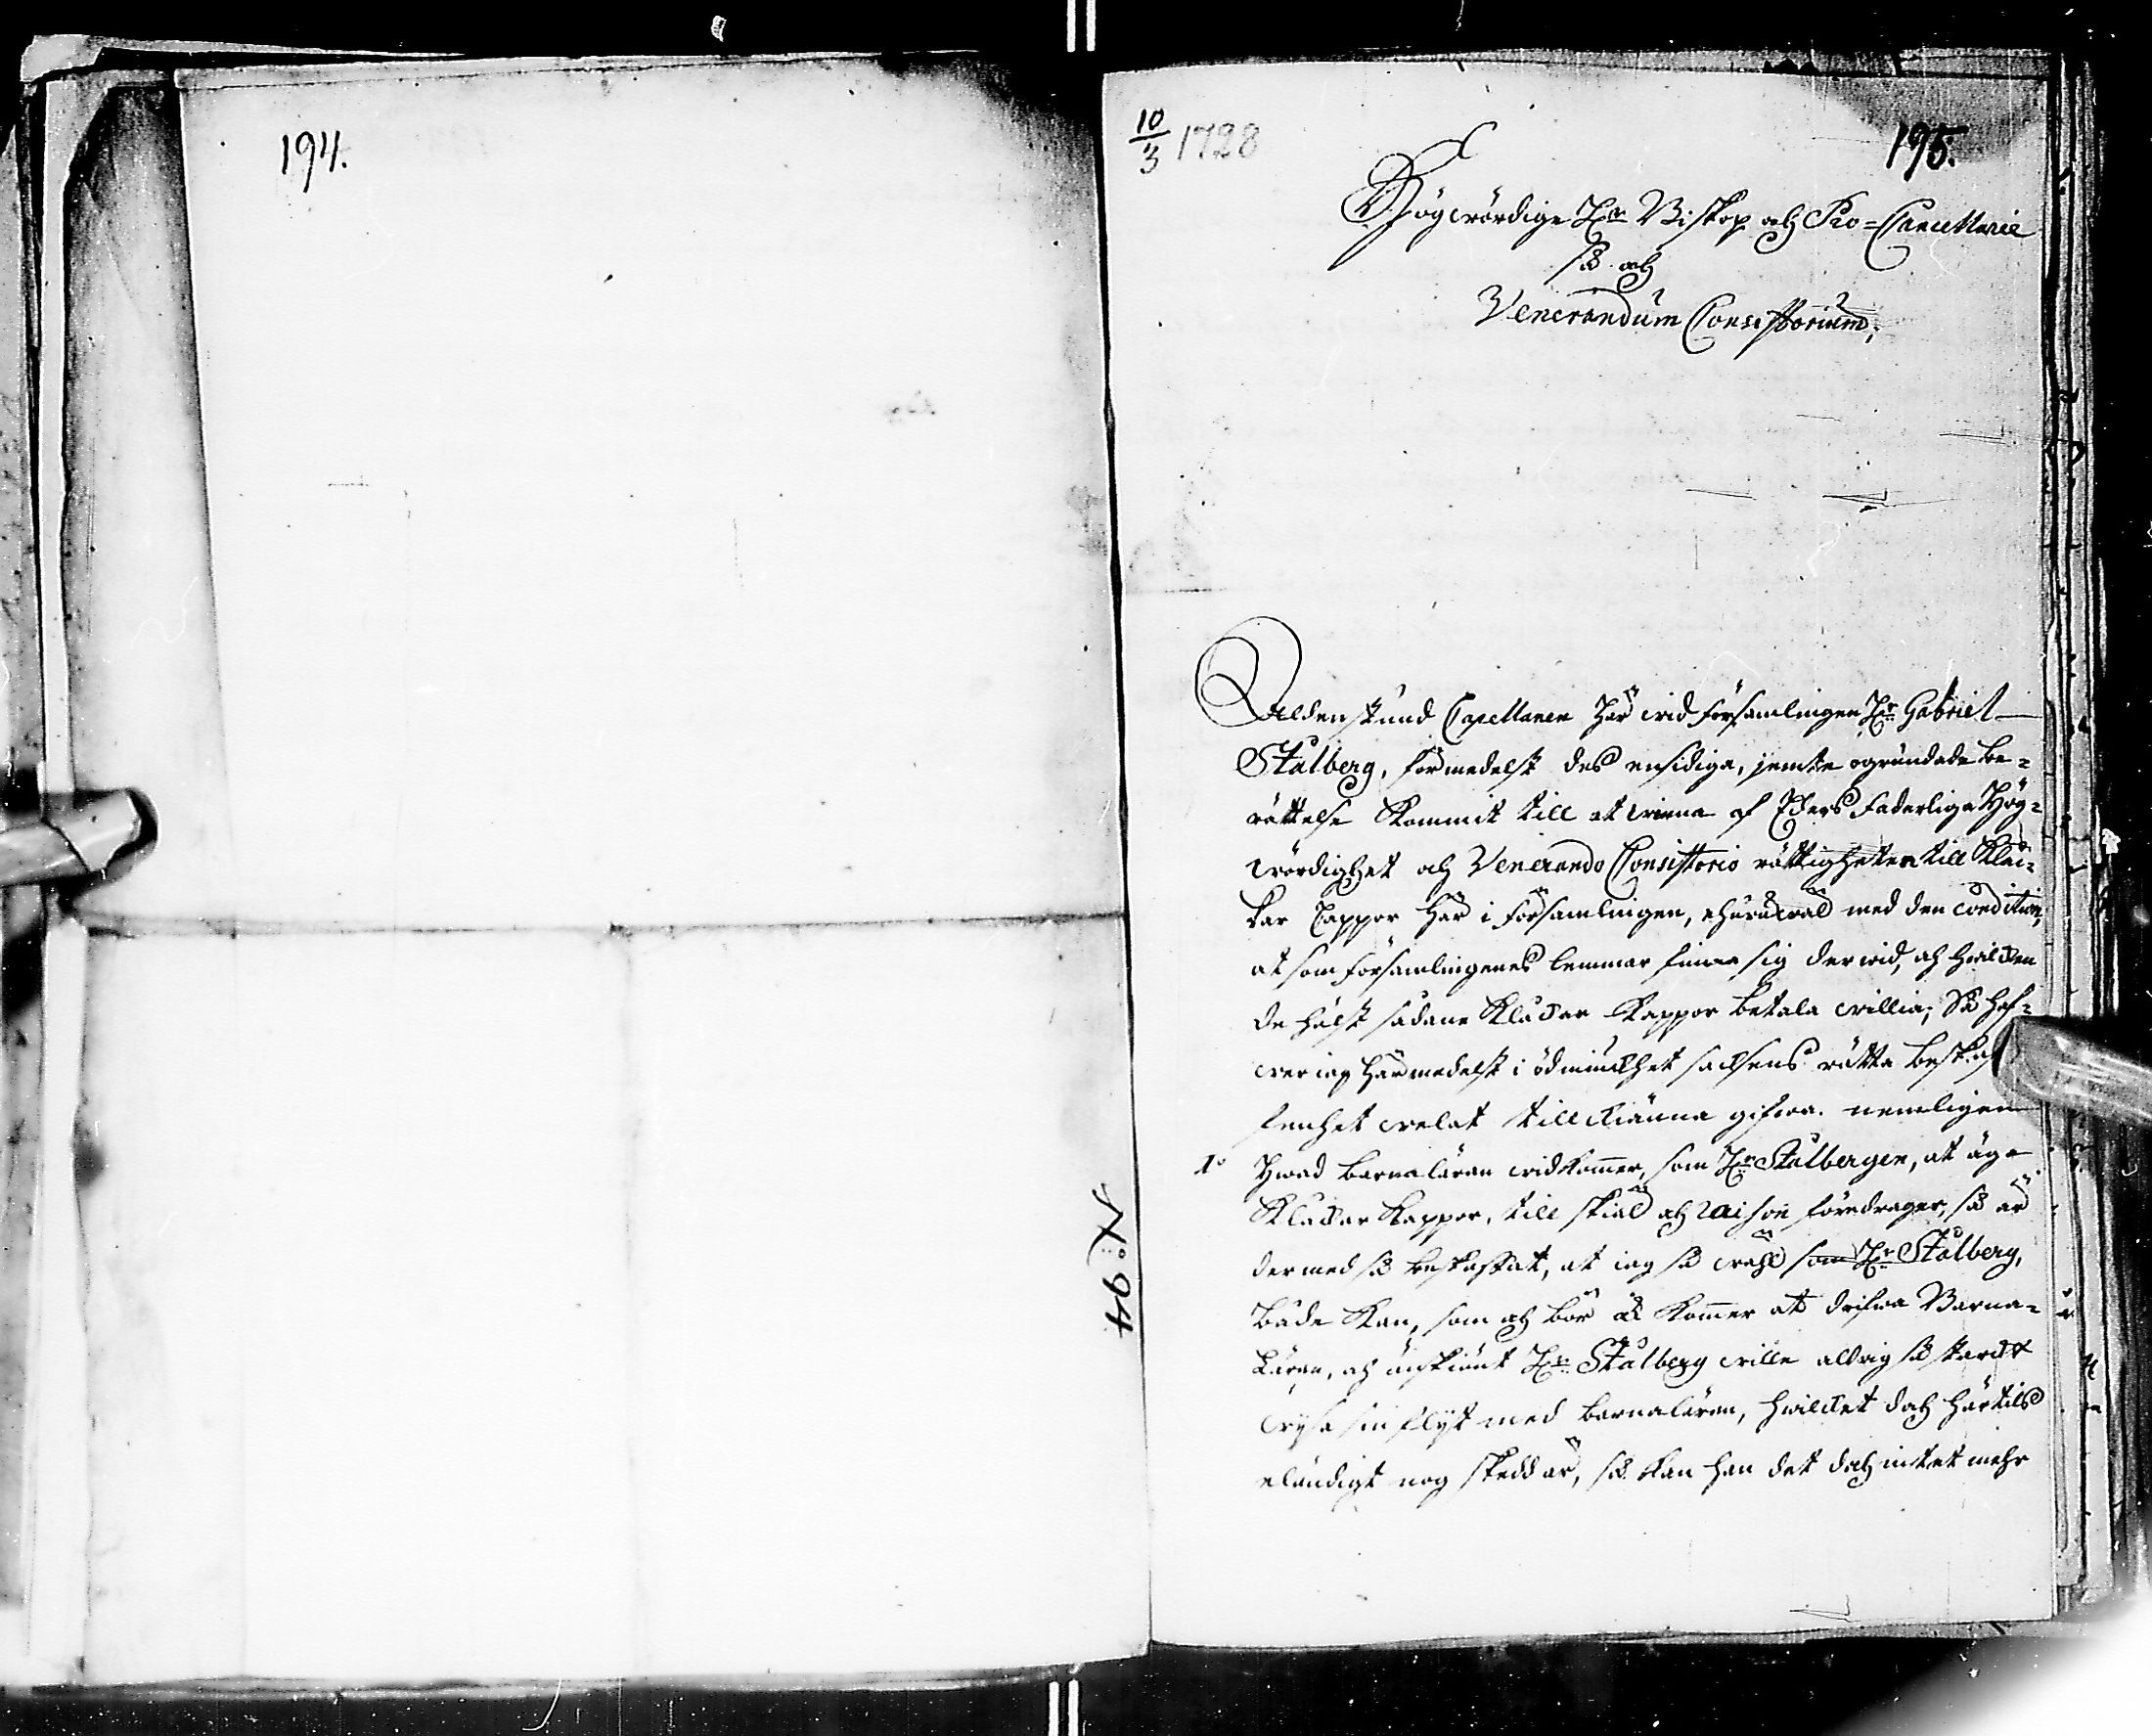 194.
N:o 94
10/3 1728
195.
Högwördige H:r Biskop och Pro-Cancellarie
så och
Venerandum Consistorium,
Aldenstund Capellanen här wid Församlingen H:r Gabriel
Stålberg, förmedelst des ensidiga, jemte ogrundade be-
rättelse kommit till at winna af Eders Faderliga Hög-
wördighet och Venerando Consistorio rättigheten till Kloc-
kar Cappor här i Församlingen, ehuruwäl med den condition,
at som församlingenes lemmar finna sig derwid, och hwilcken
de hälst sådane Klåckar kappor betala willia; Så haf-
wer iag härmedelst i ödmiuckhet saksens rätta beskaf
fenhet welat till kiänna gifwa. nemligen
1:o Hwad barnaläran widkommer, som H:r Stålbergen, at äga
Klåckar kappor, till skiäl och raison föredrager, så är
dermed så beskaffat, at iag så wähl som H:r Stålberg,
både kan, som och bör åk kommer at drifwa Barna-
Läran, och änskiönt H:r Stålberg wille aldrig så starckt
wysa sin flyt med barnaläran, hwilcket doch härtils
eländigt nog skedd är, så kan han det doch intet mehr